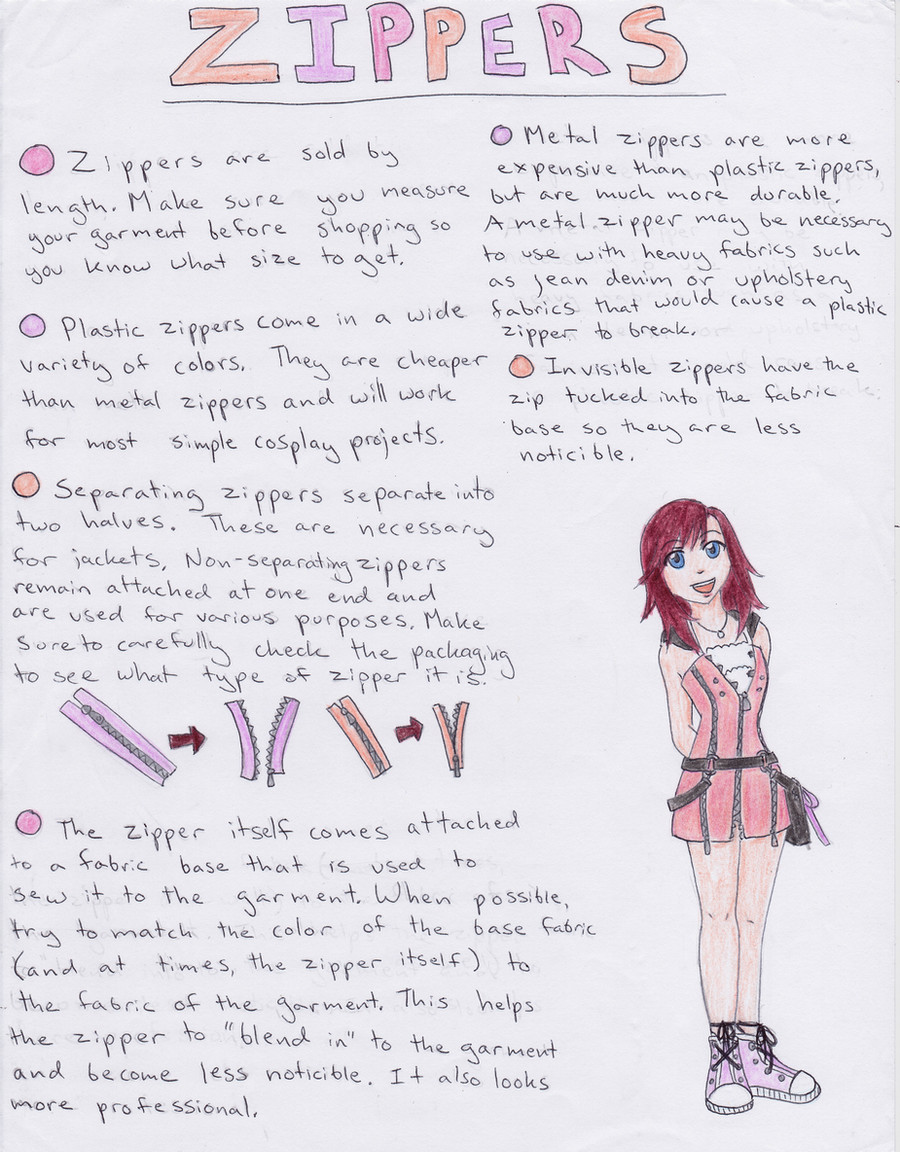 ZIPPERS
Zippers are sold by
length. Make sure you measure
your garment before shopping so
you know what size to get.
Plastic zippers come in a wide
variety of colors. They are cheaper
than metal zippers and will work
for most simple cosplay projects.
Separating zippers separate into
two halves. These are necessary
for jackets. Non-separating zippers
remain attached at one end and
are used for various purposes. Make
sure to carefully check the packaging
to see what type of zipper it is.
The zipper itself comes attached
to a fabric base that is used to
sew it to the garment. When possible,
try to match the color of the base fabric
(and at times, the zipper itself) to
the fabric of the garment. This helps
the zipper to "blend in" to the garment
and become less noticible. It also looks
more professional.
Metal zippers are more
expensive than plastic zippers,
but are much more dorable.
A metal zipper may be necessary
to use with heavy fabrics such
as jean denim or upholstery
fabrics that would cause a plastic
zipper to break.
Invisible zippers have the
zip tucked into the fabric
base so they are less
noticible.